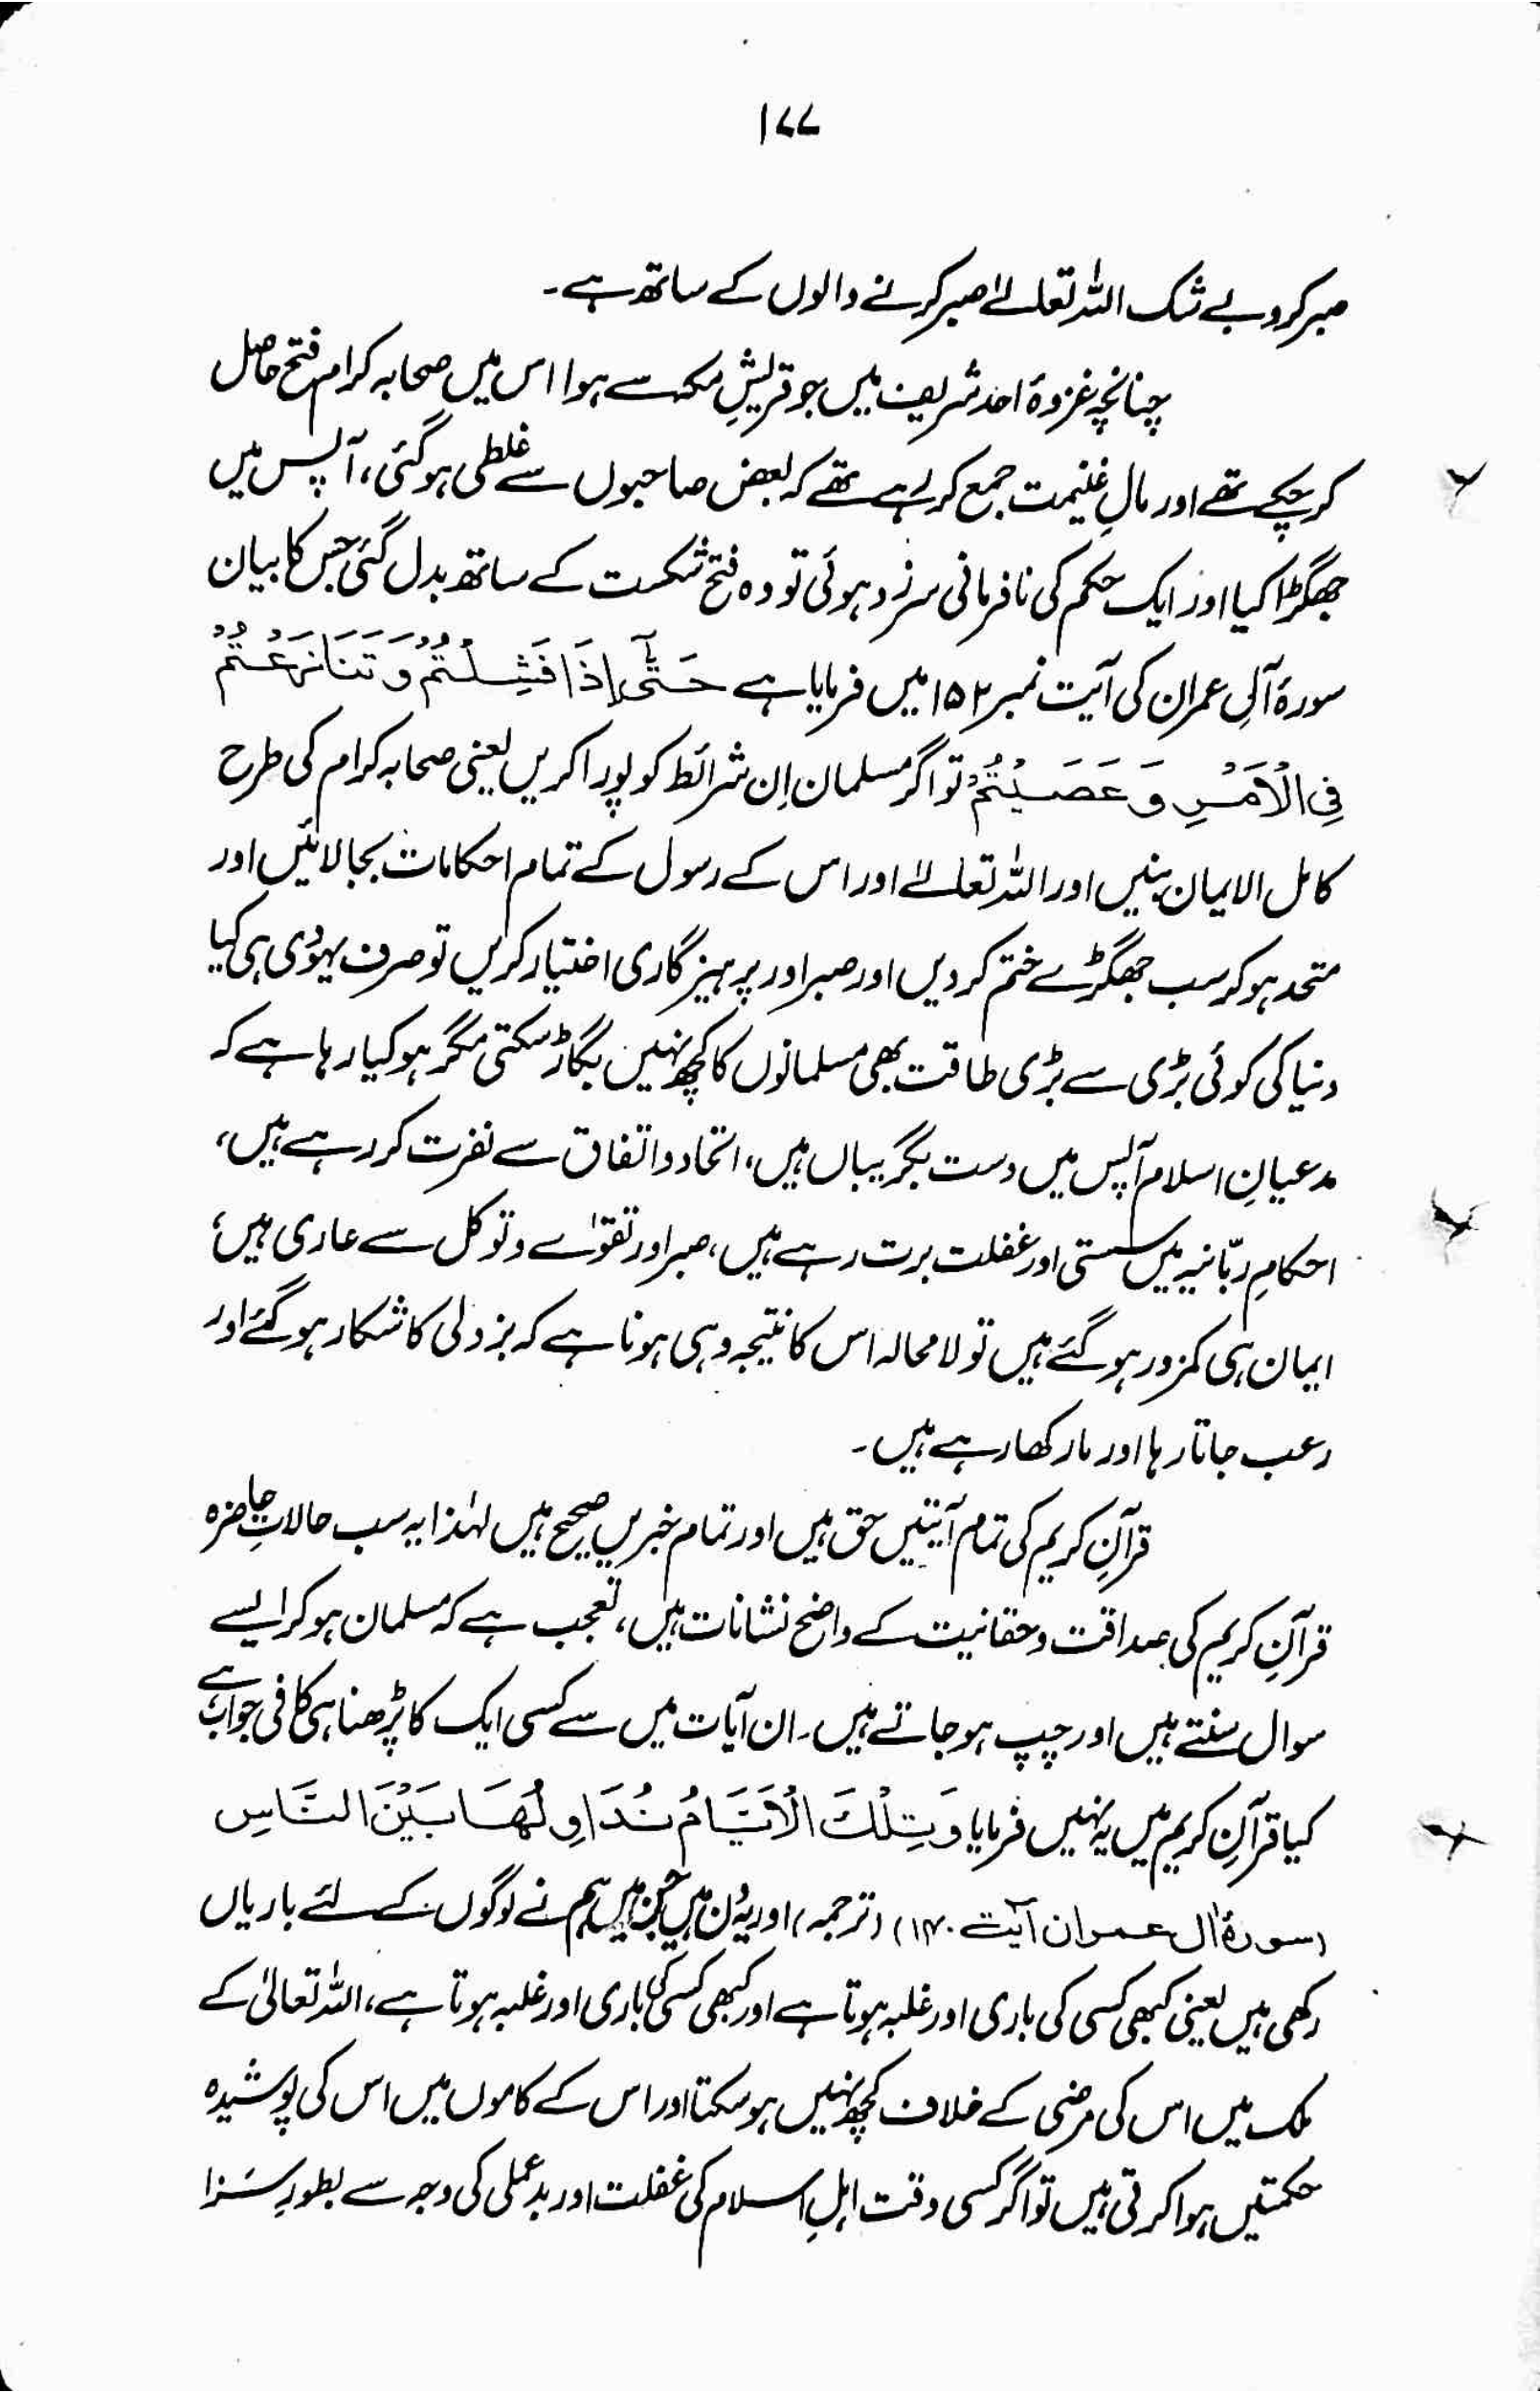 ۱۷۷
صبر کرو بے شک اللہ تعالےٰ صبر کرنے والوں کے ساتھ ہے۔
چنانچہ غزوۂ احد شریف میں جو قریشِ مکہ سے ہوا اس میں صحابہ کرام فتح حاصل
کر چکے تھے اور مالِ غنیمت جمع کر رہے تھے کہ بعض صاحبوں سے غلطی ہو گئی، آپس میں
جھگڑا کیا اور ایک حکم کی نافرمانی سرزد ہوئی تو وہ فتح شکست کے ساتھ بدل گئی جس کا بیان
سورۂ آلِ عمران کی آیت نمبر ۱۵۲ میں فرمایا ہے حَتّٰٓی اِذَا فَشِلْتُمْ وَ تَنَازَعْتُمْ
فِی الْاَمْرِ وَ عَصَیْتُمْ تو اگر مسلمان اِن شرائط کو پورا کریں یعنی صحابہ کرام کی طرح
کامل الایمان بنیں اور اللہ تعالےٰ اور اس کے رسول کے تمام احکامات بجا لائیں اور
متحد ہو کر سب جھگڑے ختم کر دیں اور صبر اور پرہیزگاری اختیار کریں تو صرف یہودی ہی کیا
دنیا کی کوئی بڑی سے بڑی طاقت بھی مسلمانوں کا کچھ نہیں بگاڑ سکتی مگر ہو کیا رہا ہے کہ
مدعیانِ اسلام آپس میں دست بگریباں ہیں، اتحاد و اتفاق سے نفرت کر رہے ہیں،
احکامِ ربّانیہ میں سستی اور غفلت برت رہے ہیں، صبر اور تقوٰے و توکل سے عاری ہیں،
ایمان ہی کمزور ہو گئے ہیں تو لا محالہ اس کا نتیجہ وہی ہونا ہے کہ بزدلی کا شکار ہو گئے اور
رعب جاتا رہا اور مار کھا رہے ہیں۔
قرآنِ کریم کی تمام آیتیں حق ہیں اور تمام خبریں صحیح ہیں لہٰذا یہ سب حالاتِ حاضرہ
قرآنِ کریم کی صداقت و حقانیت کے واضح نشانات ہیں، تعجب ہے کہ مسلمان ہو کر ایسے
سوال سنتے ہیں اور چپ ہو جاتے ہیں۔ ان آیات میں سے کسی ایک کا پڑھنا ہی کافی جواب ہے
کیا قرآنِ کریم میں یہ نہیں فرمایا وَ تِلْکَ الْاَیَّامُ نُدَاوِلُهَا بَیْنَ النَّاسِ
(سورۂ اٰل عمران آیت ۱۴۰) (ترجمہ) اور یہ دن ہیں جن میں ہم نے لوگوں کے لئے باریاں
رکھی ہیں یعنی کبھی کسی کی باری اور غلبہ ہوتا ہے اور کبھی کسی کی باری اور غلبہ ہوتا ہے، اللہ تعالیٰ کے
ملک میں اس کی مرضی کے خلاف کچھ نہیں ہو سکتا اور اس کے کاموں میں اس کی پوشیدہ
حکمتیں ہوا کرتی ہیں تو اگر کسی وقت اہلِ اسلام کی غفلت اور بد عملی کی وجہ سے بطورِ سَزا